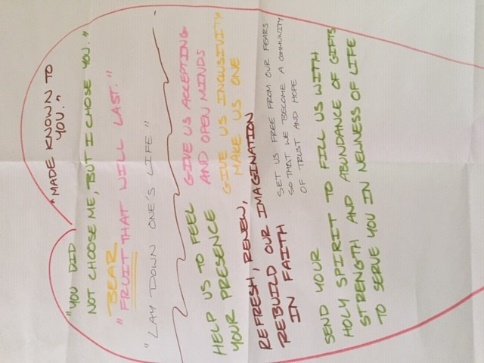 "MADE KNOWN TO
YOU."
"YOU DID
NOT CHOOSE ME, BUT I CHOSE YOU."
BEAR
"FRUIT THAT WILL LAST."
"LAY DOWN ONE'S LIFE"
GIVE US ACCEPTING
AND OPEN MINDS
HELP US TO FEEL
YOUR PRESENCE
GIVE US INCLUSIVITY
MAKE US ONE
REFRESH, RENEW,
REBUILD OUR IMAGINATION
IN FAITH
SET US FREE FROM OUR FEARS
SO THAT WE BECOME A COMMUNITY
OF TRUST AND HOPE
SEND YOUR
HOLY SPIRIT TO FILL US WITH
STRENGTH AND ABUNDANCE OF GIFTS
TO SERVE YOU IN NEWNESS OF LIFE